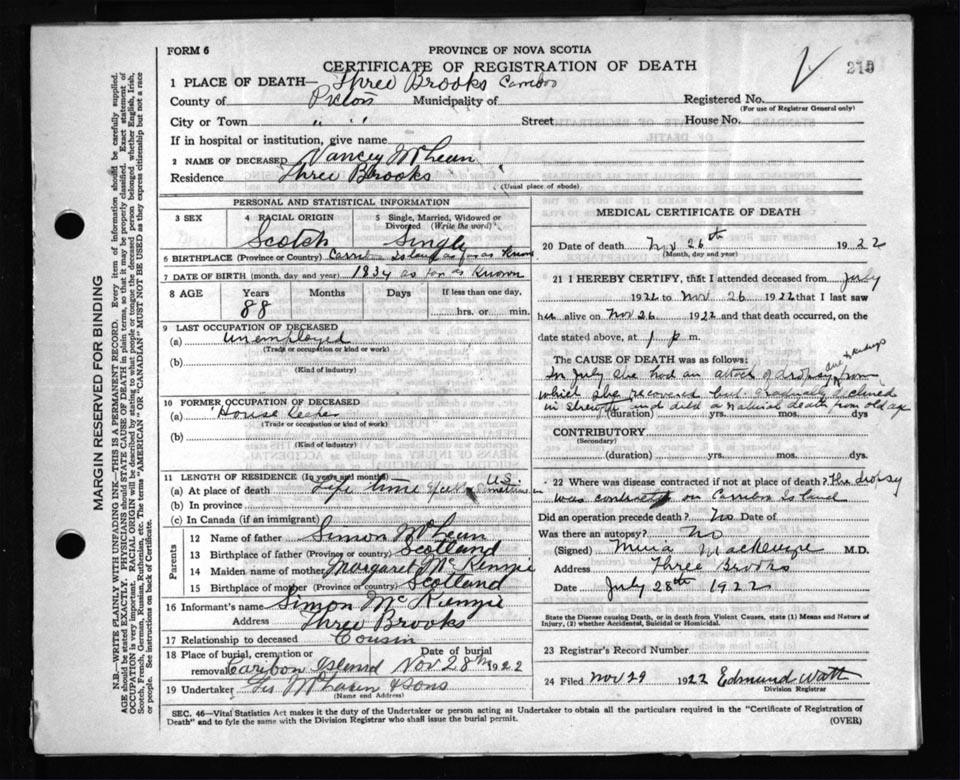 FORM 6
PROVINCE OF NOVA SCOTIA
CERTIFICATE OF REGISTRATION OF DEATH
219
1 PLACE OF DEATH— Three Brooks Carriboo
County of Pictou Municipality of Registered No.
(For use of Registrar General only)
City or Town " " Street House No.
If in hospital or institution, give name
2 NAME OF DECEASED Nancy McLean
Residence Three Brooks
(Usual place of abode)
PERSONAL AND STATISTICAL INFORMATION
3 SEX
4 RACIAL ORIGIN
Scotch
5 Single, Married, Widowed or Divorced (Write the word)
Single
6 BIRTHPLACE (Province or Country) Carriboo Island as far as Known
7 DATE OF BIRTH (month, day and year) 1834 as far as Known
8 AGE Years Months Days If less than one day,
88 hrs. or min.
9 LAST OCCUPATION OF DECEASED
(a) unemployed
(Trade or occupation or kind of work)
(b)
(Kind of industry)
10 FORMER OCCUPATION OF DECEASED
(a) House Keeper
(Trade or occupation or kind of work)
(b)
(Kind of industry)
11 LENGTH OF RESIDENCE (In years and months)
(a) At place of death Life time U.S.
(b) In province
(c) In Canada (if an immigrant)
Parents
12 Name of father Simon McLean
13 Birthplace of father (Province or country) Scotland
14 Maiden name of mother Margaret McKenzie
15 Birthplace of mother (Province or country) Scotland
16 Informant's name Simon McKenzie
Address Three Brooks
17 Relationship to deceased Cousin
18 Place of burial, cremation or removal Date of burial
Caribou Island Nov 28th 1922
19 Undertaker & Sons
(Name and Address)
MEDICAL CERTIFICATE OF DEATH
20 Date of death Nov 26th 1922
(Month, day and year)
21 I HEREBY CERTIFY, that I attended deceased from July
1922 to Nov 26 1922 that I last saw
her alive on Nov 26 1922 and that death occurred, on the
date stated above, at 1 p m.
The CAUSE OF DEATH was as follows:
In July she had an attack of dropsy due to kidneys from
which she recovered but gradually declined
in strength and died a natural death from old age
(duration) yrs. mos. dys
CONTRIBUTORY
(Secondary)
(duration) yrs. mos. dys.
22 Where was disease contracted if not at place of death? The dropsy
was contracted on Carriboo Island
Did an operation precede death? no Date of
Was there an autopsy? no
(Signed) Mackenzie M.D.
Address Three Brooks
Date July 28th 1922
State the Disease causing Death, or in death from Violent Causes, state (1) Means and Nature of Injury, (2) whether Accidental, Suicidal or Homicidal.
23 Registrar's Record Number
24 Filed Nov 29 1922 Edmund Watt
Division Registrar
SEC. 46—Vital Statistics Act makes it the duty of the Undertaker or person acting as Undertaker to obtain all the particulars required in the "Certificate of Registration of
Death" and to fyle the same with the Division Registrar who shall issue the burial permit.
(OVER)
MARGIN RESERVED FOR BINDING
N.B.—WRITE PLAINLY WITH UNFADING INK—THIS IS A PERMANENT RECORD. Every item of information should be carefully supplied.
AGE should be stated EXACTLY. PHYSICIANS should STATE CAUSE OF DEATH in plain terms, so that it may be properly classified. Exact statement of
OCCUPATION is very important. RACIAL ORIGIN will be described by stating to what people or tongue the deceased person belonged whether English, Irish,
Scotch, French, German, Russian, Ruthenian, etc. The terms "AMERICAN" OR "CANADIAN" MUST NOT BE USED as they express citizenship but not a race
or people. See instructions on back of Certificate.